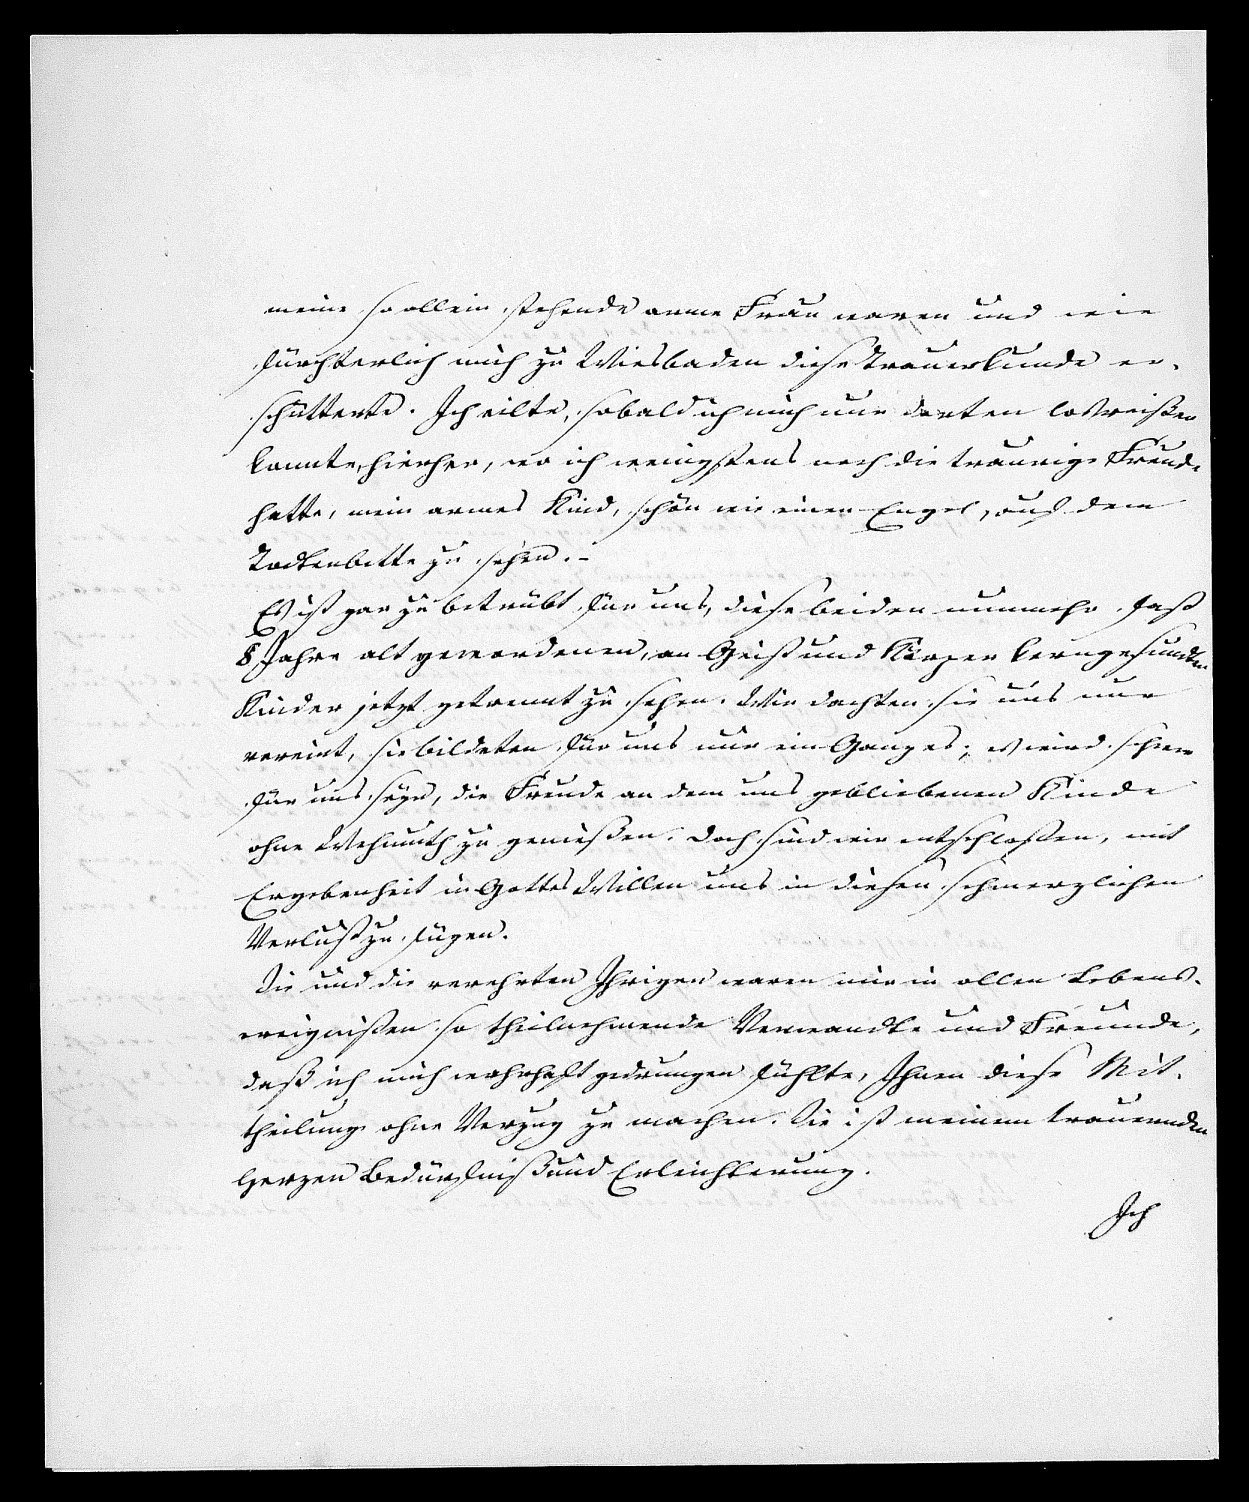 meine so allein stehende arme Frau waren und wie
fürchterlich mich zu Wiesbaden diese Trauerkunde er-
schütterte. Ich eilte, sobald ich mich nur dorten losreißen
konnte, hierher, wo ich wenigstens noch die traurige Freude
hatte, mein armes Kind, schön wie einen Engel, auf dem
Todtenbette zu sehen. –
Es ist gar zu betrübt für uns, diese beiden nunmehr fast
8 Jahre alt gewordenen, an Geist und Körper kerngesunden
Kinder jetzt getrennt zu sehen. Wir dachten sie uns nur
vereint, sie bildeten für uns nur ein Ganzes; es wird schwer
für uns seyn, die Freude an dem uns gebliebenen Kinde
ohne Wehmuth zu genießen. Doch sind wir entschloßen, mit
Ergebenheit in Gottes Willen uns in diesen schmerzlichen
Verlust zu fügen.
Sie und die verehrten Ihrigen waren mir in allen Lebens-
ereignißen so theilnehmende Verwandte und Freunde,
daß ich mich wahrhaft gedrungen fühlte, Ihnen diese Mit-
theilung ohne Verzug zu machen. Sie ist meinem trauernden
Herzen Bedürfniß und Erleichterung.
Ich